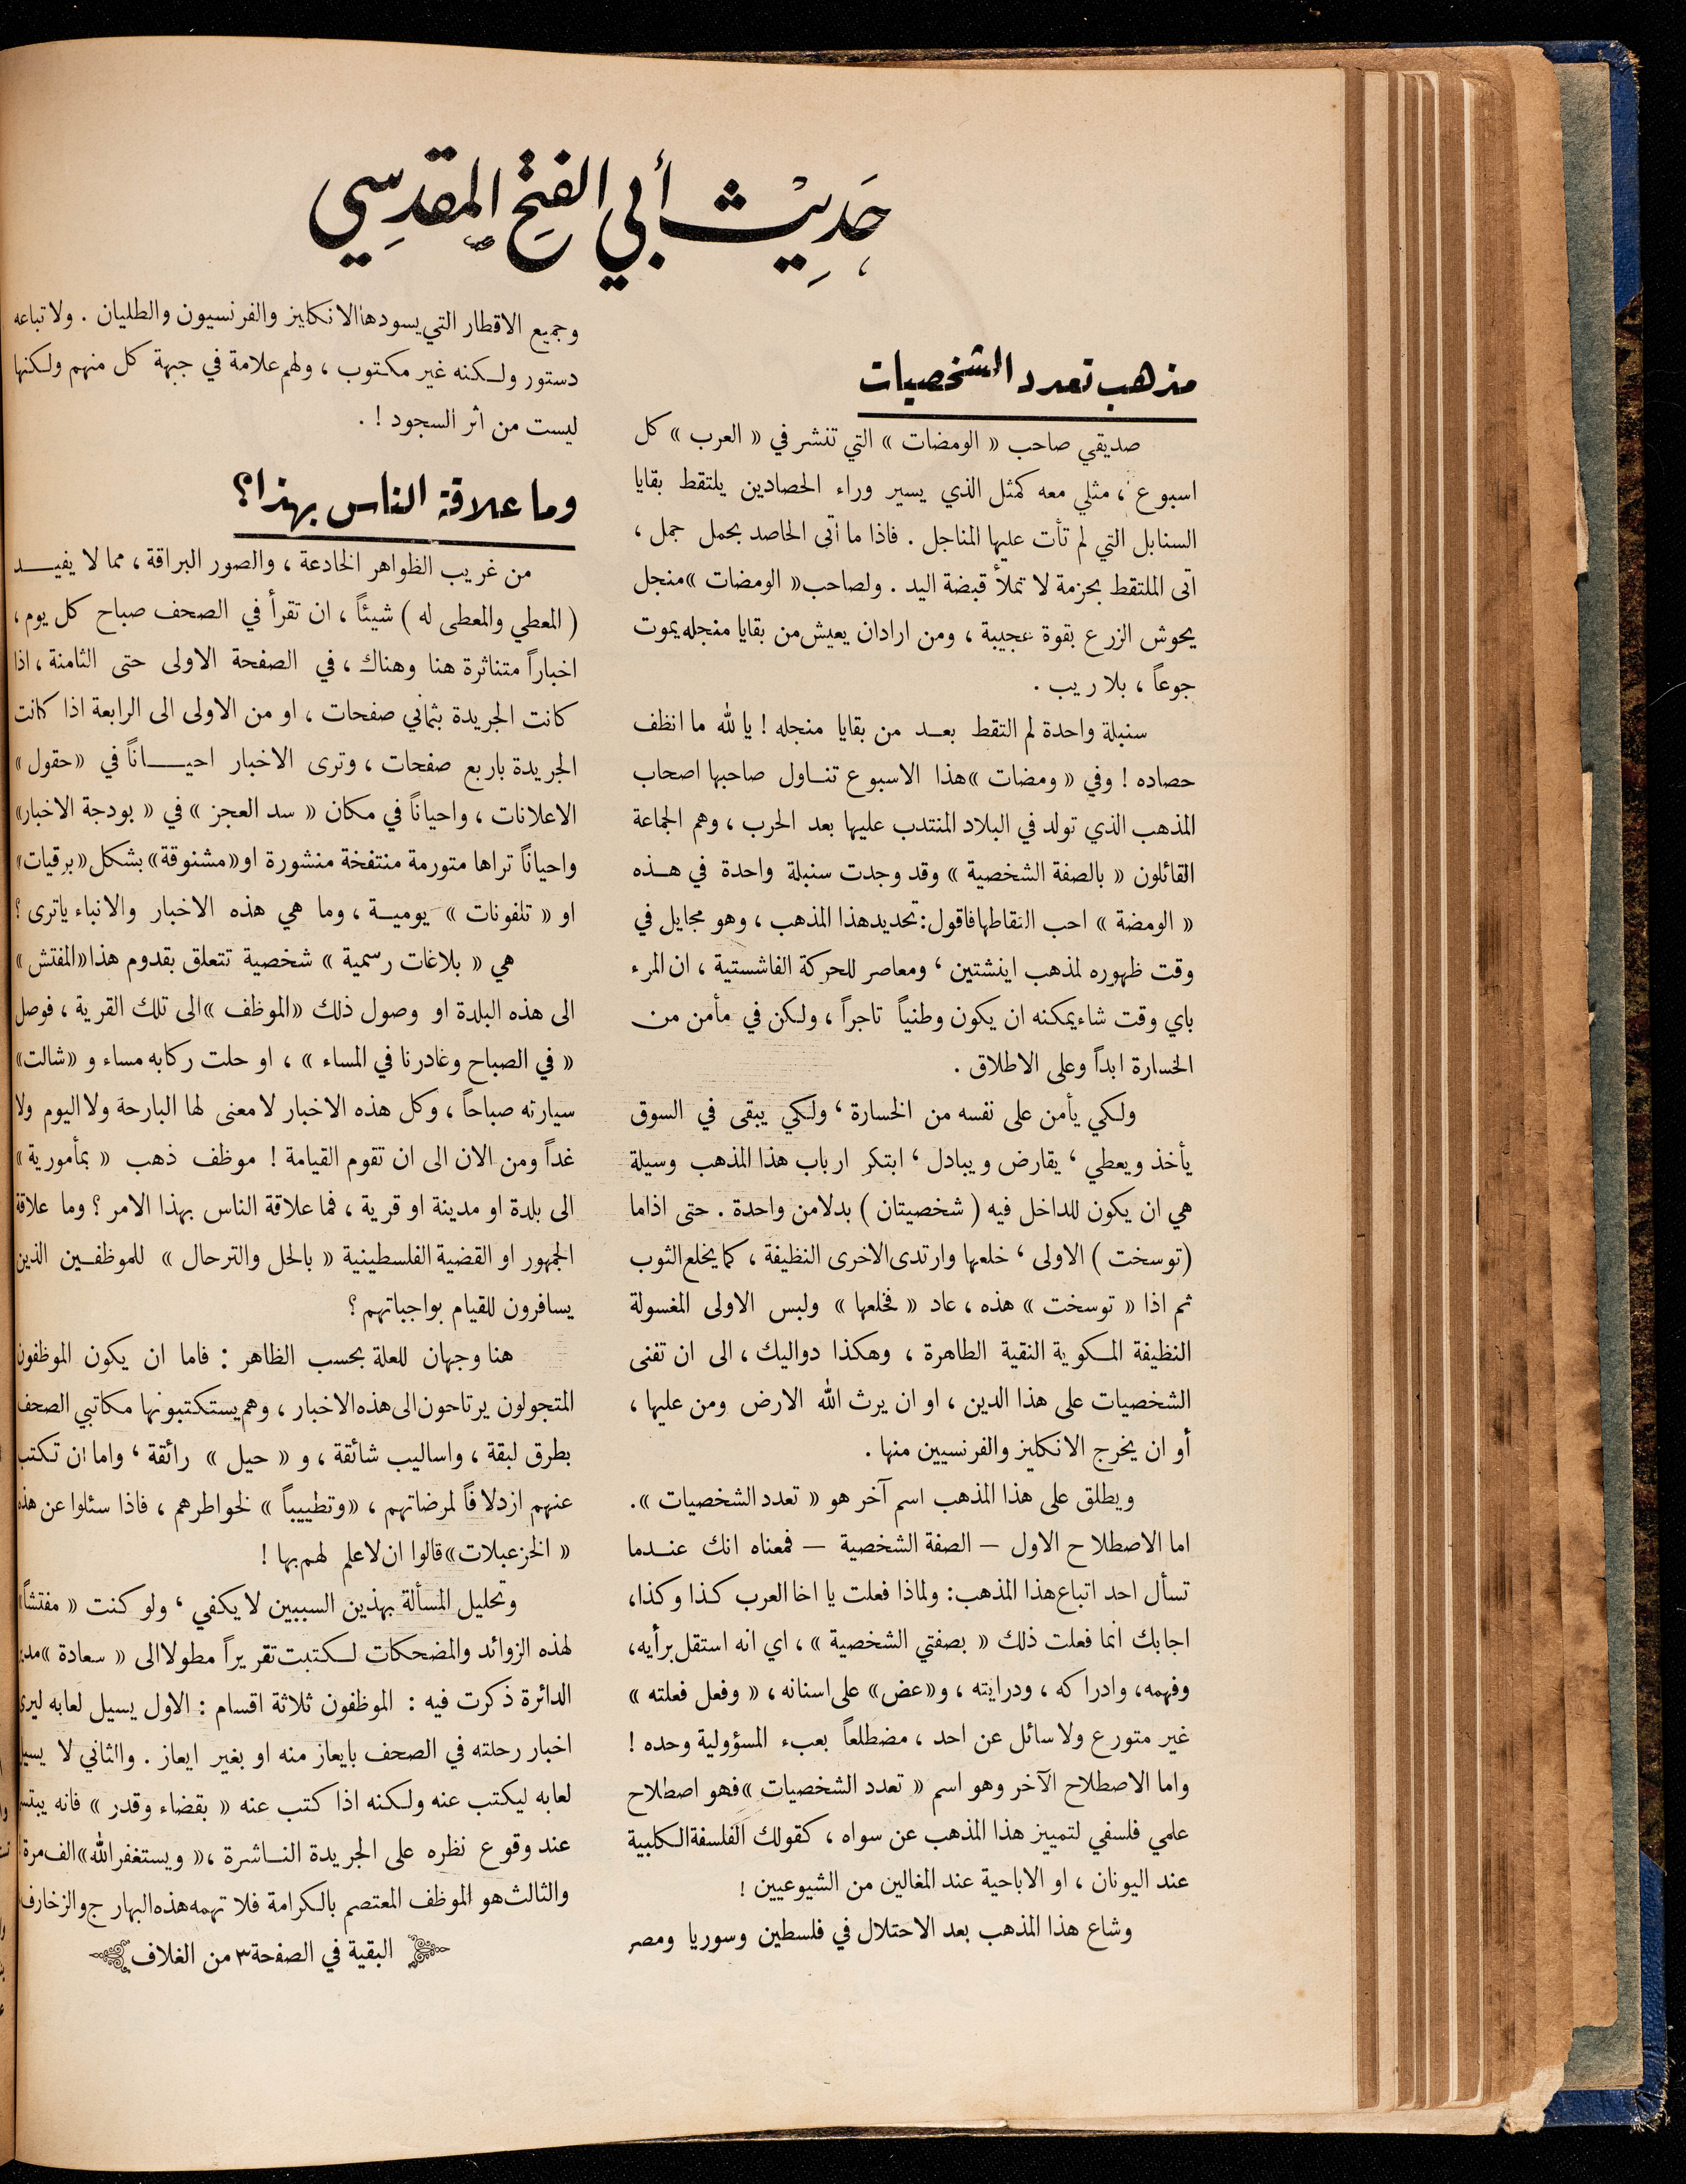 حَديث أبي الفتح المقدسي
مذهب تعدد الشخصيات
صديقي صاحب « الومضات » التي تنشر في « العرب » كل
اسبوع ، مثلي معه كمثل الذي يسير وراء الحصادين يلتقط بقايا
السنابل التي لم تأت عليها المناجل . فاذا ما أتى الحاصد بحمل جمل ،
أتى الملتقط بحزمة لا تملأ قبضة اليد . ولصاحب « الومضات » منجل
يحوش الزرع بقوة عجيبة ، ومن اراد ان يعيش من بقايا منجله يموت
جوعاً ، بلا ريب .
سنبلة واحدة لم التقط بعد من بقايا منجله ! يا لله ما انظف
حصاده ! وفي « ومضات » هذا الاسبوع تناول صاحبها اصحاب
المذهب الذي تولد في البلاد المنتدب عليها بعد الحرب ، وهم الجماعة
القائلون « بالصفة الشخصية » وقد وجدت سنبلة واحدة في هذه
« الومضة » احب التقاطها فاقول : تحديد هذا المذهب ، وهو مجايل في
وقت ظهوره لمذهب اينشتين ، ومعاصر للحركة الفاشستية ، ان المرء
باي وقت شاء يمكنه ان يكون وطنياً تاجراً ، ولكن في مأمن من
الخسارة ابداً وعلى الاطلاق .
ولكي يأمن على نفسه من الخسارة ، ولكي يبقى في السوق
يأخذ ويعطي ، يقارض ويبادل ، ابتكر ارباب هذا المذهب وسيلة
هي ان يكون للداخل فيه ( شخصيتان ) بدلا من واحدة . حتى اذا ما
(توسخت ) الاولى ، خلعها وارتدى الاخرى النظيفة ، كما يخلع الثوب
ثم اذا « توسخت » هذه ، عاد « فخلعها » ولبس الاولى المغسولة
النظيفة المكوية النقية الطاهرة ، وهكذا دواليك ، الى ان تفنى
الشخصيات على هذا الدين ، او ان يرث الله الارض ومن عليها ،
أو ان يخرج الانكليز والفرنسيين منها .
ويطلق على هذا المذهب اسم آخر هو « تعدد الشخصيات ».
اما الاصطلاح الاول – الصفة الشخصية – فمعناه انك عندما
تسأل احد اتباع هذا المذهب : ولماذا فعلت يا اخا العرب كذا وكذا،
اجابك انما فعلت ذلك « بصفتي الشخصية » ، اي انه استقل برأيه،
وفهمه، وادراكه ، ودرايته ، و«عض» على اسنانه ، « وفعل فعلته »
غير متورع ولا سائل عن احد ، مضطلعاً بعبء المسؤولية وحده !
واما الاصطلاح الآخر وهو اسم « تعدد الشخصيات » فهو اصطلاح
علمي فلسفي لتمييز هذا المذهب عن سواه ، كقولك الفلسفة الكلبية
عند اليونان ، او الاباحية عند المغالين من الشيوعيين !
وشاع هذا المذهب بعد الاحتلال في فلسطين وسوريا ومصر
وجميع الاقطار التي يسودها الانكليز والفرنسيون والطليان . ولاتباعه
دستور ولكنه غير مكتوب ، ولهم علامة في جبهة كل منهم ولكنها
ليست من اثر السجود ! .
وما علاقة الناس بهذا؟
من غريب الظواهر الخادعة ، والصور البراقة ، مما لا يفيد
( المعطي والمعطى له ) شيئاً ، ان تقرأ في الصحف صباح كل يوم ،
اخباراً متناثرة هنا وهناك ، في الصفحة الاولى حتى الثامنة ، اذا
كانت الجريدة بثماني صفحات ، او من الاولى الى الرابعة اذا كانت
الجريدة باربع صفحات ، وترى الاخبار احياناً في «حقول»
الاعلانات ، واحياناً في مكان « سد العجز » في « بودجة الاخبار»
واحياناً تراها متورمة منتفخة منشورة او «مشنوقة» بشكل « برقيات»
او « تلفونات » يومية ، وما هي هذه الاخبار والانباء ياترى ؟
هي « بلاغات رسمية » شخصية تتعلق بقدوم هذا «المفتش»
الى هذه البلدة او وصول ذلك «الموظف » الى تلك القرية ، فوصل
« في الصباح وغادرنا في المساء » ، او حلت ركابه مساء و «شالت»
سيارته صباحاً ، وكل هذه الاخبار لا معنى لها البارحة ولا اليوم ولا
غداً ومن الان الى ان تقوم القيامة ! موظف ذهب « بمأمورية »
الى بلدة او مدينة او قرية ، فما علاقة الناس بهذا الامر ؟ وما علاقة
الجمهور او القضية الفلسطينية « بالحل والترحال » للموظفين الذين
يسافرون للقيام بواجباتهم ؟
هنا وجهان للعلة بحسب الظاهر : فاما ان يكون الموظفون
المتجولون يرتاحون الى هذه الاخبار ، وهم يستكتبونها مكاتبي الصحف
بطرق لبقة ، واساليب شائقة ، و « حيل » رائقة ، واما ان تكتب
عنهم ازدلافاً لمرضاتهم ، «وتطييباً » لخواطرهم ، فاذا سئلوا عن هذه
« الخزعبلات» قالوا ان لا علم لهم بها !
وتحليل المسألة بهذين السببين لا يكفي ، ولو كنت « مفتشاً»
لهذه الزوائد والمضحكات لكتبت تقريراً مطولا الى « سعادة »
الدائرة ذكرت فيه : الموظفون ثلاثة اقسام : الاول يسيل لعابه ليرى
اخبار رحلته في الصحف بايعاز منه او بغير ايعاز . والثاني لا يسيل
لعابه ليكتب عنه ولكنه اذا كتب عنه « بقضاء وقدر » فانه
عند وقوع نظره على الجريدة الناشرة ، « ويستغفر الله» الف مرة
والثالث هو الموظف المعتصم بالكرامة فلا تهمه هذه البهارج والزخارف
البقية في الصفحة ٣ من الغلاف